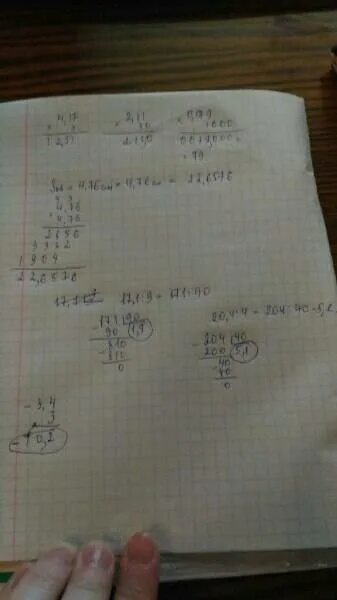 4,17 2,11 0,079
× × 10 × 1000
12,51 21,10 0079,000
= 79
Sкв = 4,76 см × 4,76 см = 22,6576
4,76
4,76
2856
3332
1904
22,6576
17,1 17,1:9 = 171:90
171 90
90 1,9
810
810
0
20,4:4 = 204:40 = 5,1
204 40
200 5,1
40
40
0
- 3,4
3
- 10,2